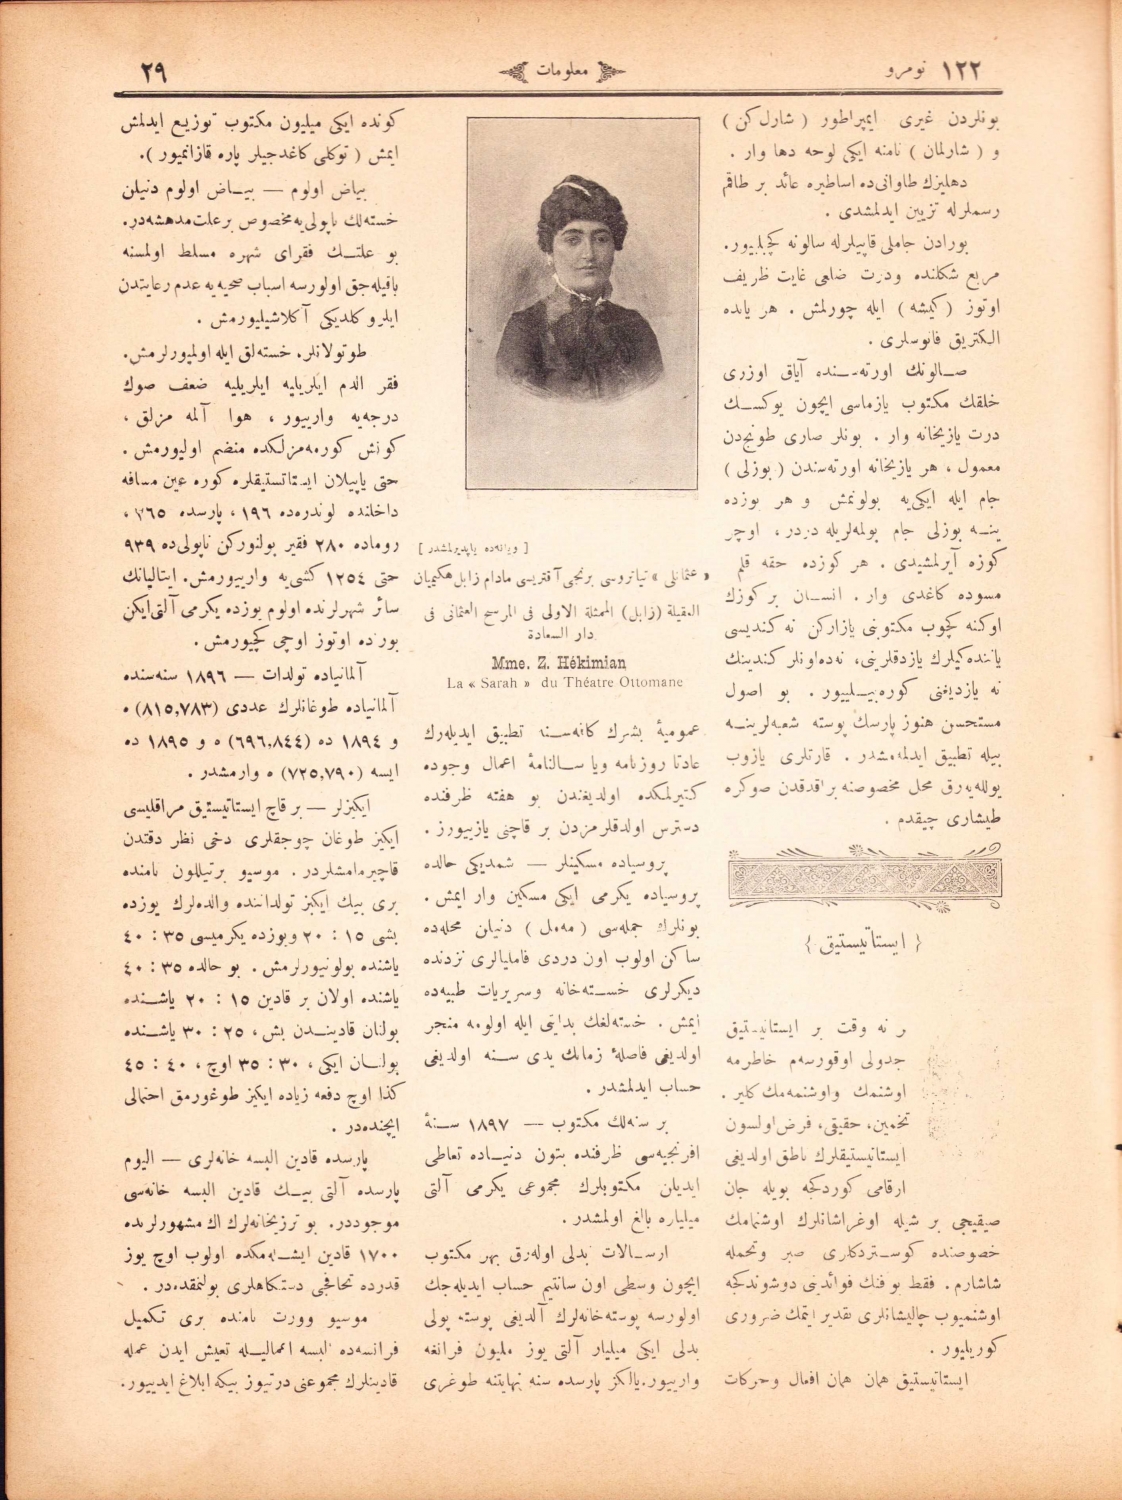 ١٢٢ نومرو
معلومات
٢٩
بونلردن غیری ایمپراطور ( شارل كن )
و ( شارلمان ) نامنه ایكی لوحه دها وار .
دهلیزك طاوانی‌ده اساطیره عائد بر طاقم
رسملرله تزیین ایدلمشدی .
بورادن جاملی قاپیلرله سالونه كچیلییور.
مربع شكلنده ودرت ضلعی غایت ظریف
اوتوز ( كیشه ) ایله چورلمش . هر یانده
الكتریق فانوسلری .
صالونك اورته‌سنده آیاق اوزری
خلقك مكتوب یازماسی ایچون یوكسك
درت یازیخانه وار . بونلر صاری طونج‌دن
معمول ، هر یازیخانه اورته‌سندن ( بوزلی )
جام ایله ایكی‌یه بولونمش و هر بوزده
ینه بوزلی جام بولمه‌لریله دردر ، اوچر
كوزه آیرلمشیدی . هر كوزده حقه قلم
مسوده كاغدی وار . انسان بر كوزك
اوكنه كچوب مكتوبنی یازاركن نه كندیسی
یاننده‌كیلرك یازدقلرینی، نه‌ده اونلر كندینك
نه یازدیغنی كوره‌بیلییور . بو اصول
مستحسن هنوز پارسك پوسته شعبه‌لرینه
بیله تطبیق ایدلمه‌مشدر . قارتلری یازوب
یوللایه‌رق محل مخصوصنه براقدقدن صوكره
طیشاری چیقدم .
{ ایستاتیستیق }
ر نه وقت بر ایستاتیستیق
جدولی اوقورسه‌م خاطرمه
اوشنمك واوشنمه‌مك كلیر .
تخمین، حقیقی، فرض اولسون
ایستاتیستیقلرك ناطق اولدیغی
ارقامی كوردكجه بویله جان
صیقیجی بر شیله اوغراشانلرك اوشنمامك
خصوصنده كوستردكلری صبر وتحمله
شاشارم . فقط بو فنك فوائدینی دوشوندكجه
اوشنمیوب چالیشانلری تقدیر ایتمك ضروری
كوریلیور .
ایستاتیستیق همان همان افعال وحركات
[ ویانه‌ده یاپدیرلمشدر ]
« عثمانلی » تیاتروسی برنجی آقتریسی مادام زابل هكیمیان
العقیلة (زابل) الممثلة الاولی فی المرسح العثمانی فی
دار السعادة
Mme. Z. Hékimian
La « Sarah » du Théatre Ottomane
عمومیهٔ بشرك كافه‌سنه تطبیق ایدیله‌رك
عادتا روزنامه ویا سالنامهٔ اعمال وجوده
كتیرلمكده اولدیغندن بو هفته ظرفنده
دسترس اولدقلرمزدن بر قاچنی یازییورز .
پروسیاده مسكینلر — شمدیكی حالده
پروسیاده یكرمی ایكی مسكین وار ایمش .
بونلرك جمله‌سی ( مه‌مل ) دنیلن محله‌ده
ساكن اولوب اون دردی فامیالری نزدنده
دیكرلری خسته‌خانه وسریریات طبیه‌ده
ایمش . خسته‌لغك بدایتی ایله اولومه منجر
اولدیغی فاصلهٔ زمانك یدی سنه اولدیغی
حساب ایدلمشدر .
بر سنه‌لك مكتوب — ١٨٩٧ سنهٔ
افرنجیه‌سی ظرفنده بتون دنیاده تعاطی
ایدیلن مكتوبلرك مجموعی یكرمی آلتی
میلیاره بالغ اولمشدر .
ارسالات بدلی اوله‌رق بهر مكتوب
ایچون وسطی اون سانتیم حساب ایدیله‌جك
اولورسه پوسته‌خانه‌لرك آلدیغی پوسته پولی
بدلی ایكی میلیار آلتی یوز ملیون فرانغه
وارییور. یالكز پارسده سنه نهایتنه طوغری
كونده ایكی میلیون مكتوب توزیع ایدلمش
ایمش ( توكلی كاغدجیلر پاره قازانمیور ).
بیاض اولوم — بیاض اولوم دنیلن
خسته‌لك ناپولی‌یه مخصوص بر علت مدهشه‌در.
بو علتك فقرای شهره مسلط اولمسنه
باقیله‌جق اولورسه اسباب صحیه‌یه عدم رعایتدن
ایلرو كلدیكی آكلاشیلیورمش .
طوتولانلر، خسته‌لق ایله اولمیورلرمش.
فقر الدم ایلریلیه ایلریلیه ضعف صوك
درجه‌یه وارییور ، هوا آلمه مزلق ،
كونش كورمه‌مزلكده منضم اولیورمش .
حتی یاپیلان ایستاتستیقلره كوره عین مسافه
داخلنده لوندره‌ده ١٩٦ ، پارسده ٣٦٥ ،
روماده ٢٨٠ فقیر بولنوركن ناپولی‌ده ٩٣٩
حتی ١٢٥٤ كشی‌یه وارییورمش. ایتالیانك
سائر شهرلرنده اولوم یوزده یكرمی آلتی ایكن
بوراده اوتوز اوچی كچیورمش .
آلمانیاده تولدات — ١٨٩٦ سنه‌سنده
آلمانیاده طوغانلرك عددی (٨١٥,٧٨٣) ه
و ١٨٩٤ ده (٦٩٦,٨٤٤) ه و ١٨٩٥ ده
ایسه (٧٢٥,٧٩٠) ه وارمشدر .
ایكیزلر — بر قاچ ایستاتیستیق مراقلیسی
ایكیز طوغان چوجقلری دخی نظر دقتدن
قاچیرمامشلردر . موسیو برتیللون نامنده
بری بیك ایكیز تولداتنده والده‌لرك یوزده
بشی ١٥ : ٢٠ ویوزده یكرمیسی ٣٥ : ٤٠
یاشنده بولونیورلرمش . بو حالده ٣٥ : ٤٠
یاشنده اولان بر قادین ١٥ : ٢٠ یاشنده
بولنان قادیندن بش، ٢٥ : ٣٠ یاشنده
بولنان ایكی ، ٣٠ : ٣٥ اوچ ، ٤٠ : ٤٥
كذا اوچ دفعه زیاده ایكیز طوغورمق احتمالی
ایچنده‌در .
پارسده قادین البسه خانه‌لری — الیوم
پارسده آلتی بیك قادین البسه خانه‌سی
موجوددر. بو ترزیخانه‌لرك اك مشهورلرنده
١٧٠٠ قادین ایشله‌مكده اولوب اوچ یوز
قدرده تحافجی دستكاهلری بولنمقده‌در .
موسیو وورت نامنده بری تكمیل
فرانسه‌ده البسه اعمالیله تعیش ایدن عمله
قادینلرك مجموعنی درتیوز بیكه ابلاغ ایدییور.